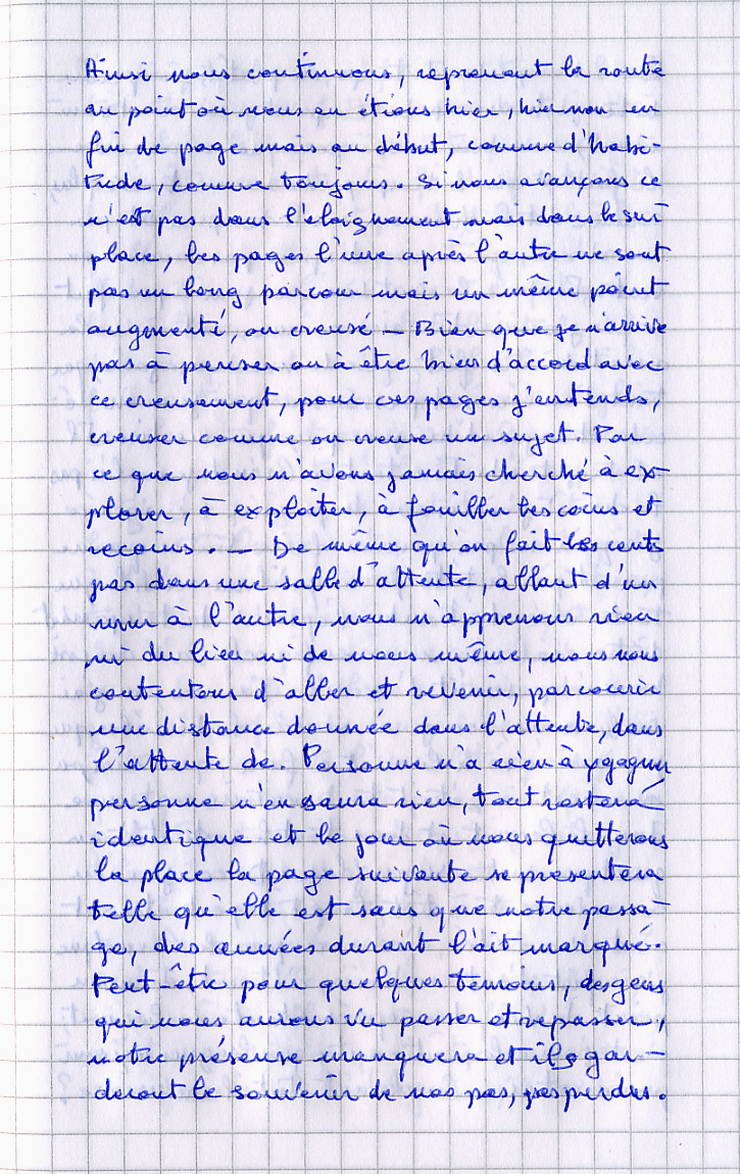 Ainsi nous continuons, reprenant la route
au point où nous en étions hier, hier non en
fin de page mais au début, comme d'habi-
tude, comme toujours. Si nous avançons ce
n'est pas dans l'éloignement mais dans le sur
place, les pages l'une après l'autre ne sont
pas un long parcour mais un même point
augmenté, ou creusé — Bien que je n'arrive
pas à penser ou à être bien d'accord avec
ce creusement, pour ces pages j'entends,
creuser comme on creuse un sujet. Par
ce que nous n'avons jamais cherché à ex-
plorer, à exploiter, à fouiller les coins et
recoins. — De même qu'on fait les cents
pas dans une salle d'attente, allant d'un
mur à l'autre, nous n'apprenons rien
ni du lieu ni de nous même, nous nous
contentons d'aller et revenir, parcourir
une distance donnée dans l'attente, dans
l'attente de. Personne n'a rien à y gagner
personne n'en saura rien, tout restera
identique et le jour où nous quitterons
la place la page suivante se présentera
telle qu'elle est sans que notre passa-
ge, des années durant l'ait marqué.
Peut-être pour quelques temoins, des gens
qui nous aurons vu passer et repasser,
notre présense manquera et ils gar-
deront le souvenir de nos pas, pas perdus.